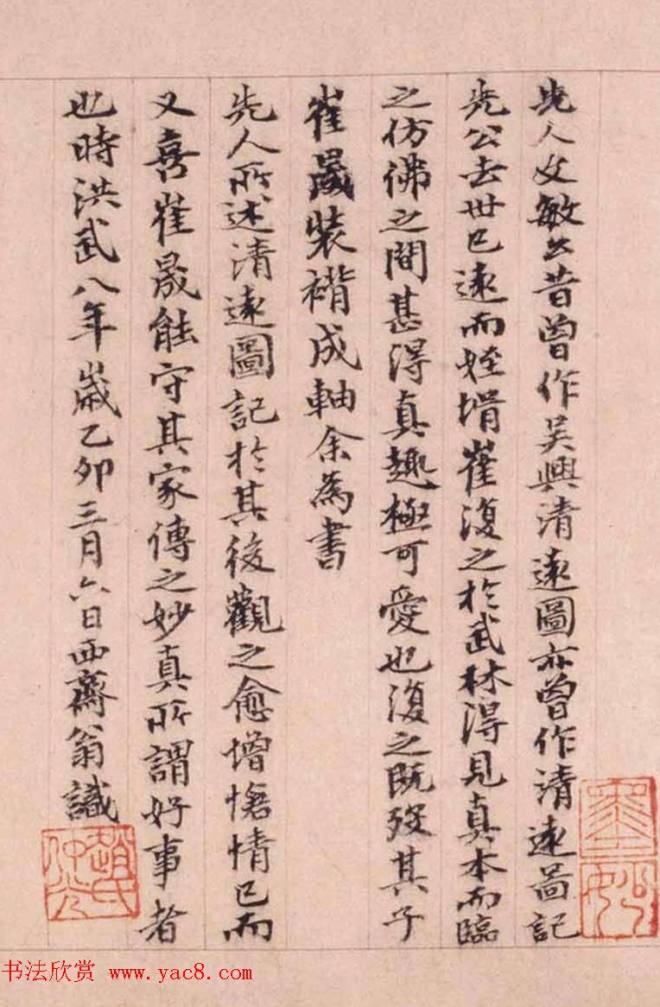 先人文敏公昔曾作吴興清遠圖亦曾作清遠圖記
先公去世已遠而姪壻崔復之於武林得見真本而臨
之仿佛之間甚得真趣極可愛也復之既歿其子
崔晟裝褙成軸余為書
先人所述清遠圖記於其後觀之愈增愴情已而
又喜崔晟能守其家傳之妙真所謂好事者
也時洪武八年歲乙卯三月六日西齋翁識
趙氏仲光
墨妙
书法欣赏 www.yac8.com